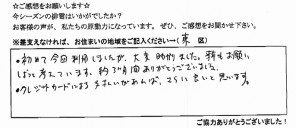 ☆ご感想をお願いします☆
今シーズンの御膳はいかがでしたか?
お客様の声が、私たちの原動力になっています。ぜひ、ご感想をお聞かせ下さい。
※差支えなければ、お住まいの地域をご記入ください→( 東 区)
・初めて今回利用しましたが、大変助かりました。料もお願い
しようと考えています。約3ヶ月間ありがとうございました。
・クレジットカードによる支払いがあれば、さらに良いと思います。
ご協力ありがとうございました!